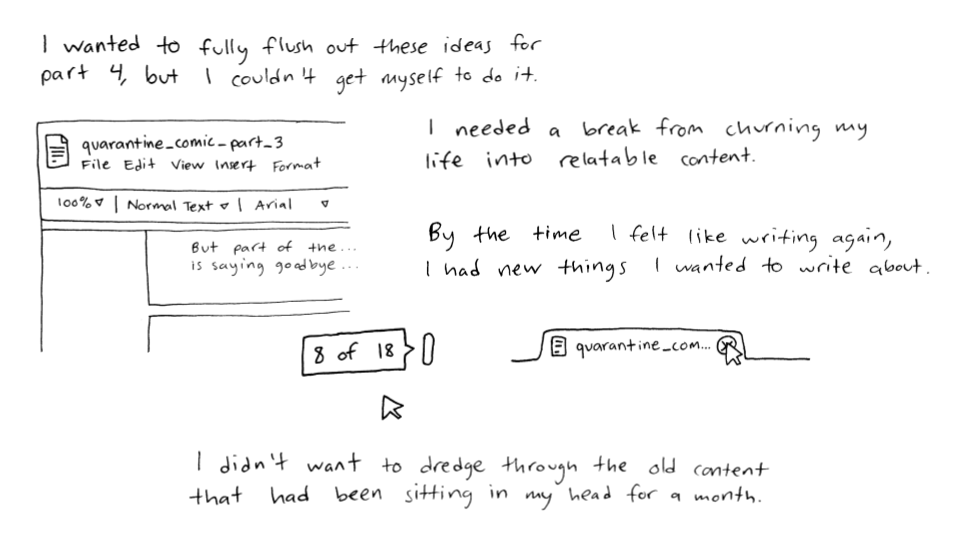 I wanted to fully flush out these ideas for
part 4, but I couldn't get myself to do it.
quarantine_comic_part_3
File Edit View Insert Format
100% | Normal Text | Arial
But part of the...
is saying goodbye...
8 of 18
I needed a break from churning my
life into relatable content.
By the time I felt like writing again,
I had new things I wanted to write about.
quarantine_com...
I didn't want to dredge through the old content
that had been sitting in my head for a month.